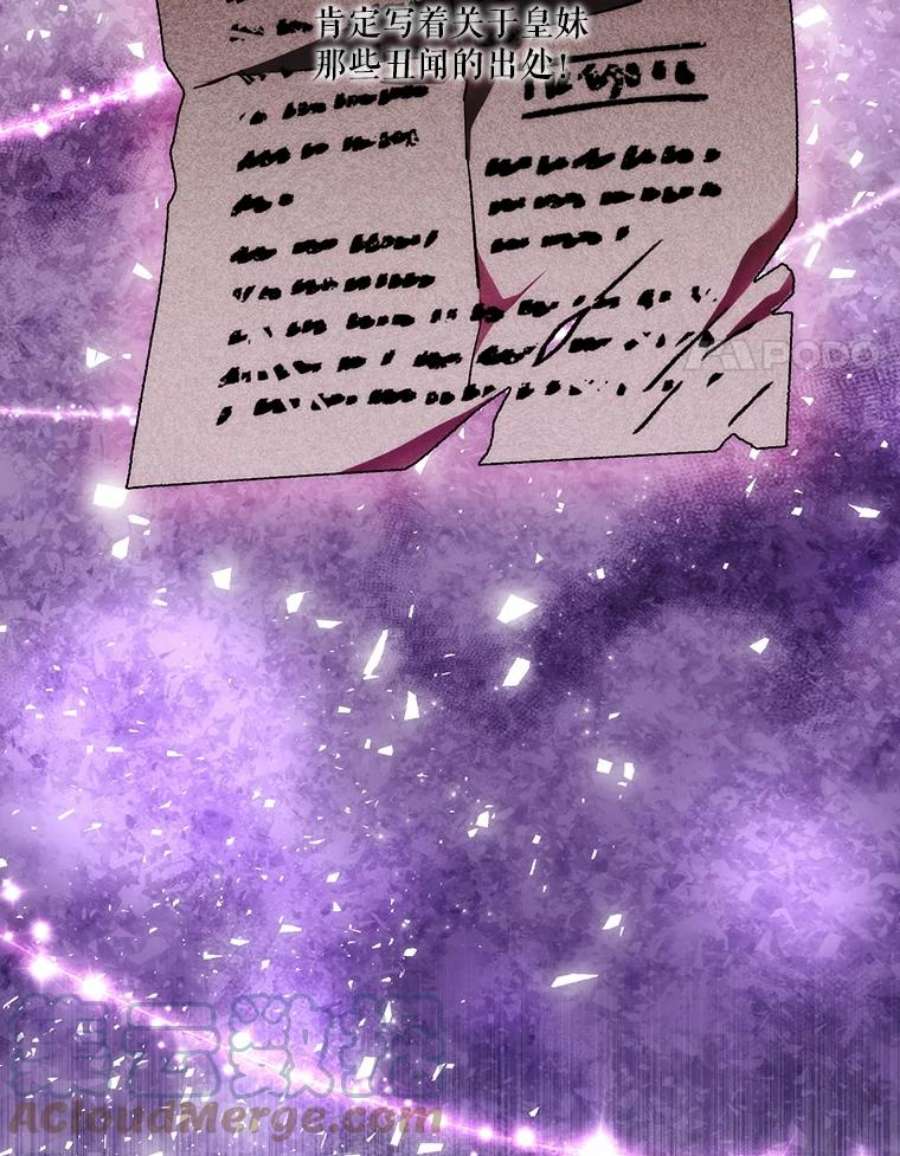 肯定写着关于皇妹
那些丑闻的出处!
PODO
笔云数据
ACloudMerge.com